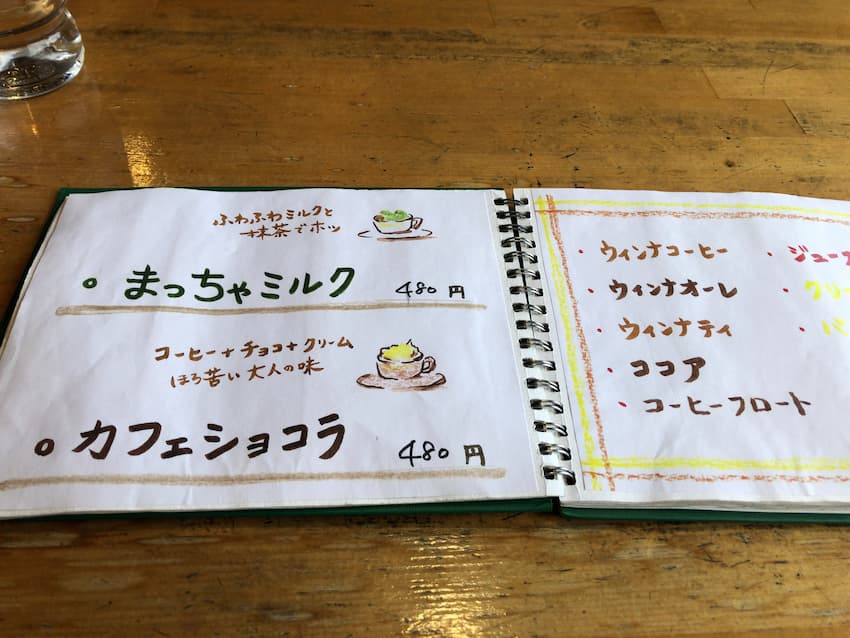 ふわふわミルクと
抹茶でホッ
まっちゃミルク 480円
コーヒー+チョコ+クリーム
ほろ苦い大人の味
カフェショコラ 480円
・ウィンナコーヒー
・ウィンナオーレ
・ウィンナティ
・ココア
・コーヒーフロート
・ジュー
・クリー